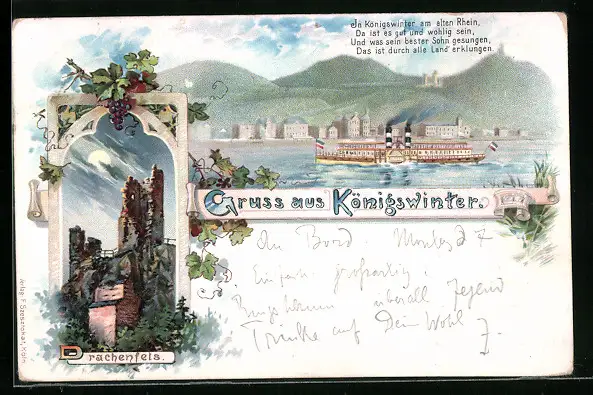 In Königswinter am alten Rhein,
Da ist es gut und wohlig sein,
Und was sein bester Sohn gesungen,
Das ist durch alle Land' erklungen.
Gruss aus Königswinter.
An Bord. Montag d 7
Einfach großartig!
überall Jugend
Trinke auf Dein Wohl
Drachenfels.